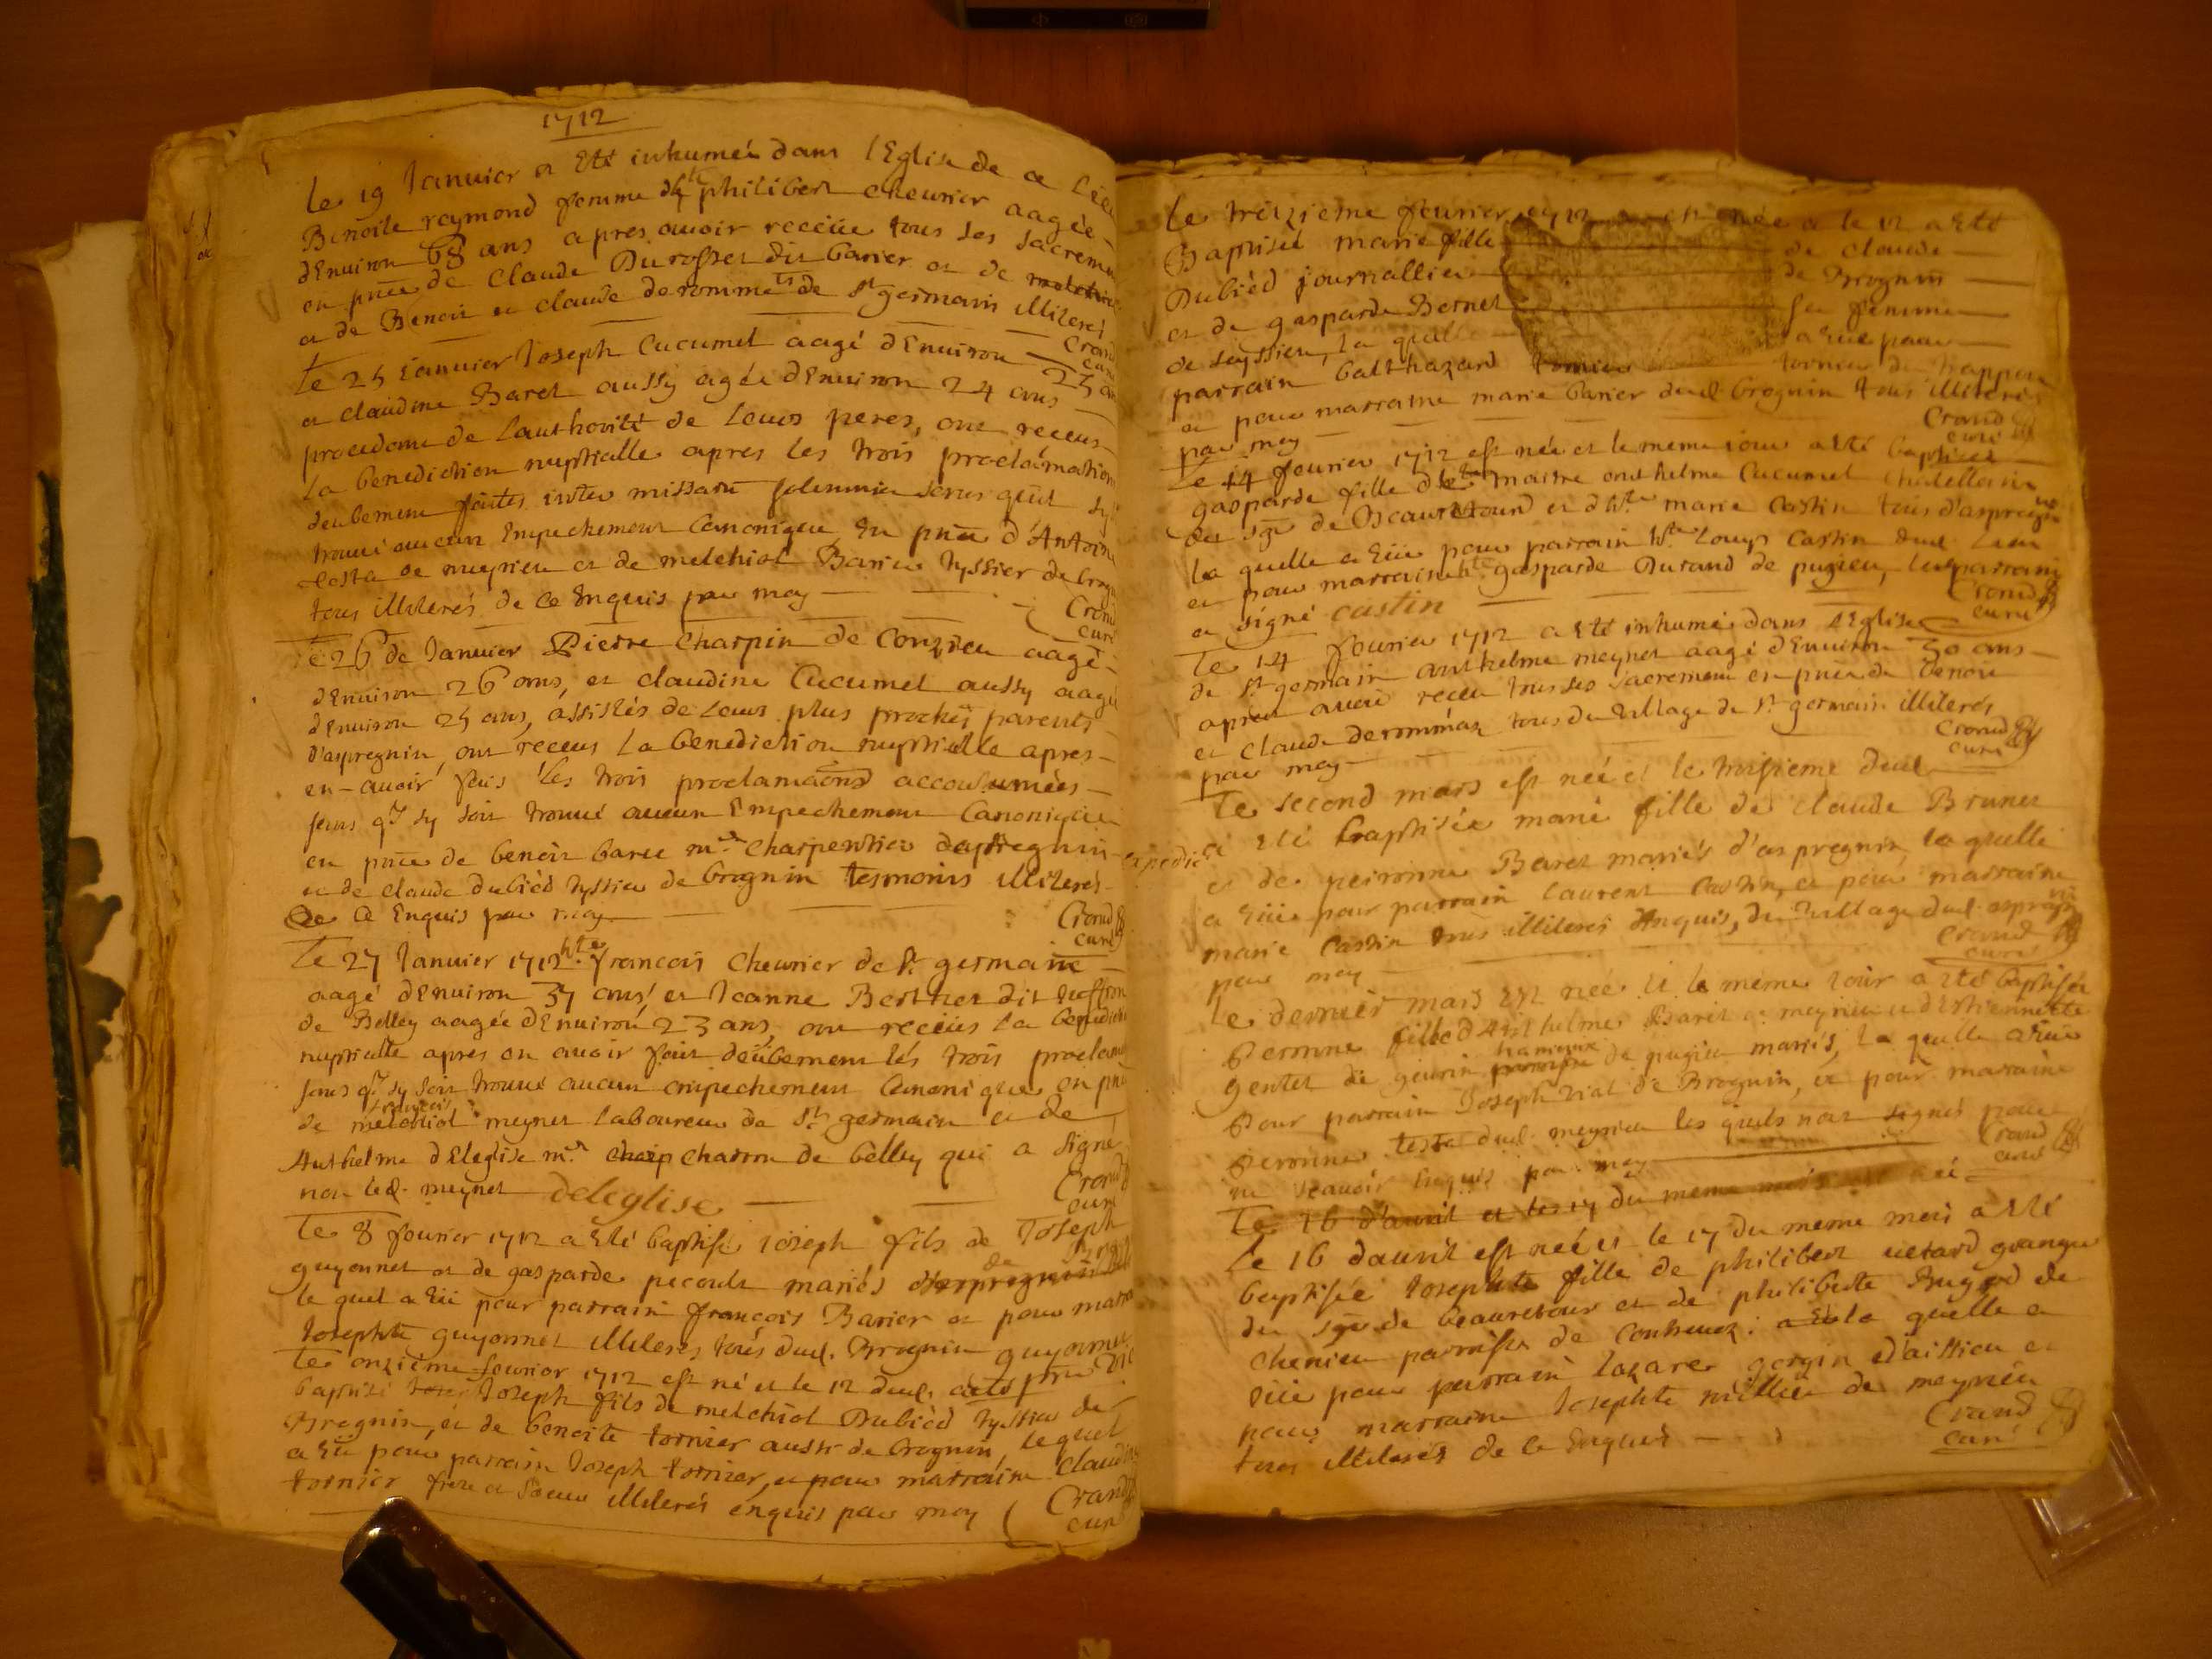 1712
Le 19 Januier a Eté inhumée dans l'Eglise de ce Lieu
Benoite reymond femme d'hte philibert cheurier aagée
d'Enuiron 68 ans apres auoir receüe tous ses sacremen
en pnce de Claude Durosset dit barier et de
et de Benoit et claude derommets de st germain illiterés
Crand
curé
Le 25 Januier Joseph Cucumel aagé d'Enuiron 25 an
et claudine Baret aussy agée d'Enuiron 24 ans
procedant de Lauthorité de Leurs peres, ont receus
la benediction nuptialle apres les trois proclamations
deubement faites inter missarū solemnia sans quil sy
trouué aucun Empechement Canonique, En pnce d'Antoine
Costa de meyrieu et de melchiol Barier tyssier de brog
tous illiterés de ce Enquis par moy
Crand
curé
Le 26 de Januier Pierre Charpin de Conzieu aagé
d'Enuiron 26 ans, et claudine Cucumel aussy aagée
d'Enuiron 25 ans, assistés de Leurs plus proches parents
d'aspregnin, ont receus la benediction nuptialle apres
en auoir fais les trois proclamaōns accoutumées
sans ql sy soit trouué aucun Empechement Canonique
en pnce de benoit baret mre Charpentier daspregnin
et de claude dubiéd tyssier de brognin tesmoins illiterés
de ce Enquis par moy
Crand
curé
Le 27 Januier 1712 hte francois cheurier de st germain
aagé d'Enuiron 37 ans, et Jeanne Berthet dit
de Belley aagée d'Enuiron 23 ans, ont receus la benedicti
nuptialle apres en auoir fait deübement les trois proclam
sans ql sy soit trouué aucun empechement Canonique en pnce
francois
de melchiol meynet laboureur de st germain et de
Anthelme d'Eleglise mre charp charron de belley qui a signé
non led. meynet deleglise
Crand
curé
Le 8 feurier 1712 a Eté baptisé Joseph fils de Joseph
guyonnet et de gasparde pecoult mariés de
le quel a Eü pour parrain françois Barier et pour marra
Josephte guyonnet illiterés tous dud. Brognin guyonnet
Le onzieme feurier 1712 est né et le 12 dud. a eté
baptisé Joseph fils de melchiol Dubiéd tyssier de
Brognin, et de benoite tornier aussi de brognin, lequel
a Eü pour parrain Joseph tornier, et pour marraine Claudine
tornier frere et soeur illiterés enquis par moy
Crand
curé
Le treizieme feurier 1712 est née et le 12 a Eté
Baptisée marie fille de claude
Dubiéd journallier de Brognin
et de gasparde Bernet sa femme
de seyssieu, la quelle a Eüe pour
parrain balthazard tornier tornier de
et pour marraine marie barier dud. brognin tous illiterés
par moy
Crand
curé
Le 14 feurier 1712 est née et le meme jour a Eté baptisée
gasparde fille d'hte maitre anthelme Cucumel chatellain
du sgr de et d'hte marie Castin tous d'aspregnin
la quelle a Eüe pour parrain hte Louys Castin dud. Lieu
et pour marraine hte gasparde Durand de pugieu, les parrain
a signé castin
Crand
curé
Le 14 feurier 1712 a Eté inhumé dans l'Eglise
de st germain anthelme meynet aagé d'Enuiron 50 ans
apres auoir receu tous ses sacremens en pnce de benoit
et claude derommaz tous du uillage de st germain illiterés
par moy
Crand
curé
Le second mars est née et le troisieme dud.
a Eté baptisée marie fille de claude Brunet
et de peironne Baret mariés d'aspregnin, la quelle
a Eüe pour parrain Laurent Castin, et pour marraine
marie Castin tous illiterés Enquis, du uillage dud. aspregnin
par moy
Crand
curé
Le dernier mars Est née et le meme jour a Eté baptisée
peronne fille d'Anthelme Baret de meyrieu et d'Estiennette
gentet de geurin de pugieu mariés, la quelle a Eüe
pour parrain Joseph vial de Brognin, et pour marraine
peronne testa dud. meyrieu les quels nont signés pour
ne scauoir Enquis par moy
Crand
curé
Le 16 d'auril et les 17 du meme mois est né
Le 16 dauril est née et le 17 du meme mois a Eté
baptisée Josephte fille de philibert uetard granger
du sgr de beauretour et de philiberte Bugnod de
chenieu parroisse de Conthieuz: la quelle a
Eüe pour parrain lazare gorgin d'aissieu et
pour marraine Josephte millier de meyrieu
tous illiterés de ce Enquis
Crand
curé